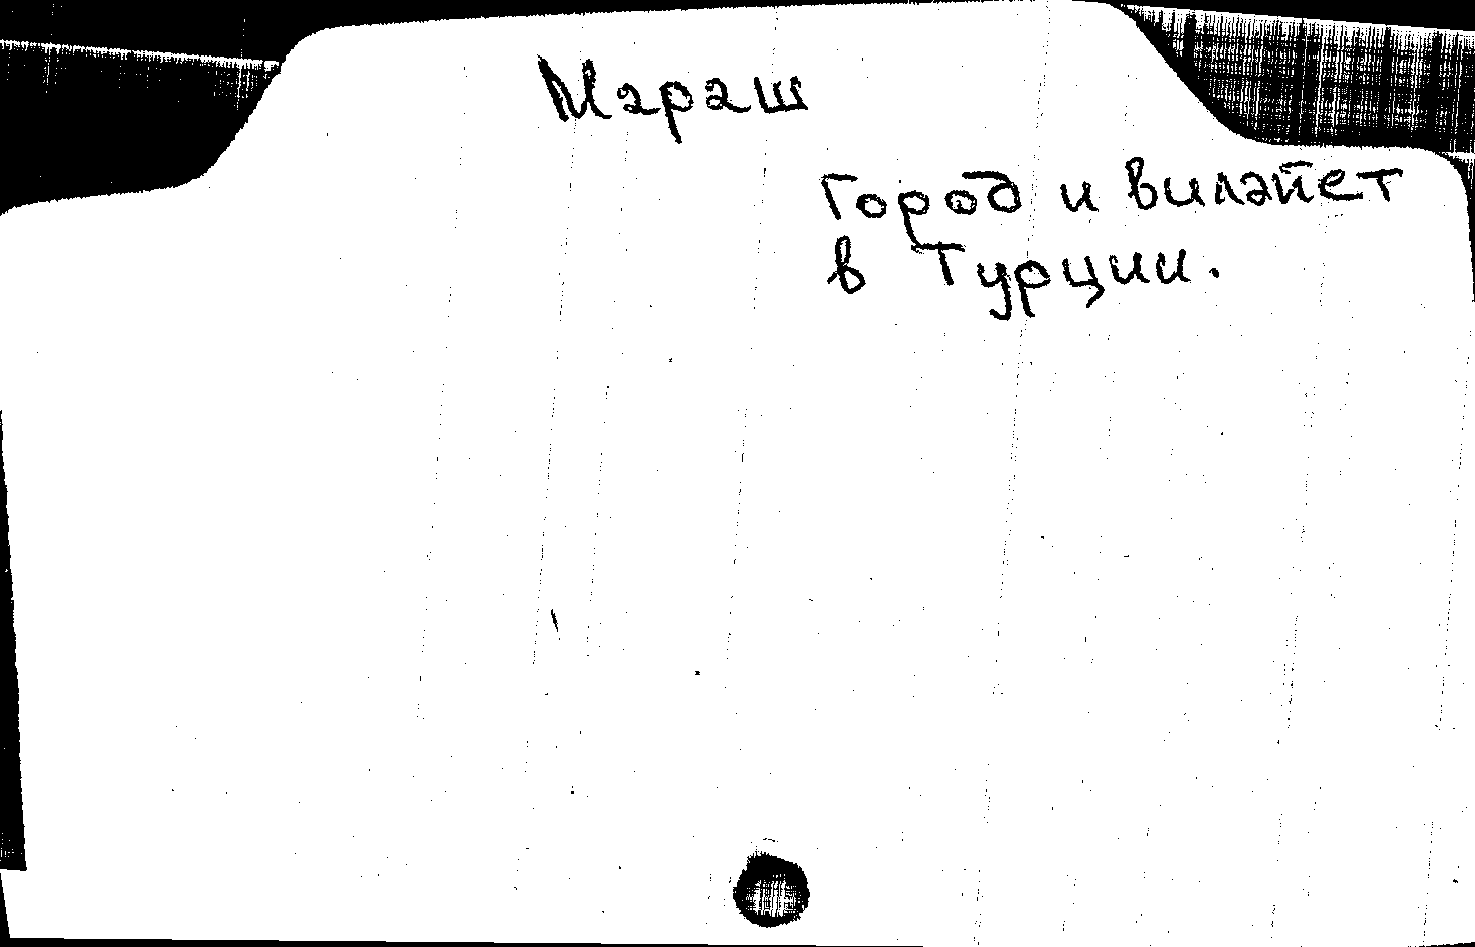 Мараш
Город и вилайет
в Турции.